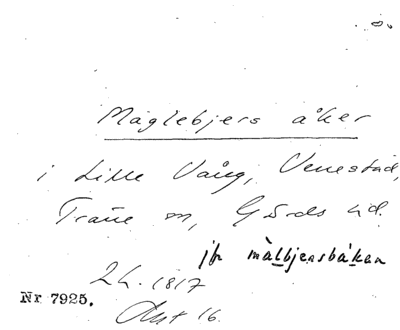 Maglebjers åker
i Lille Vång, Venestad,
Träne sn, Gärds hd.
jfr målbjersbåken
2 L. 1817
Nr 7925. Akt 16.